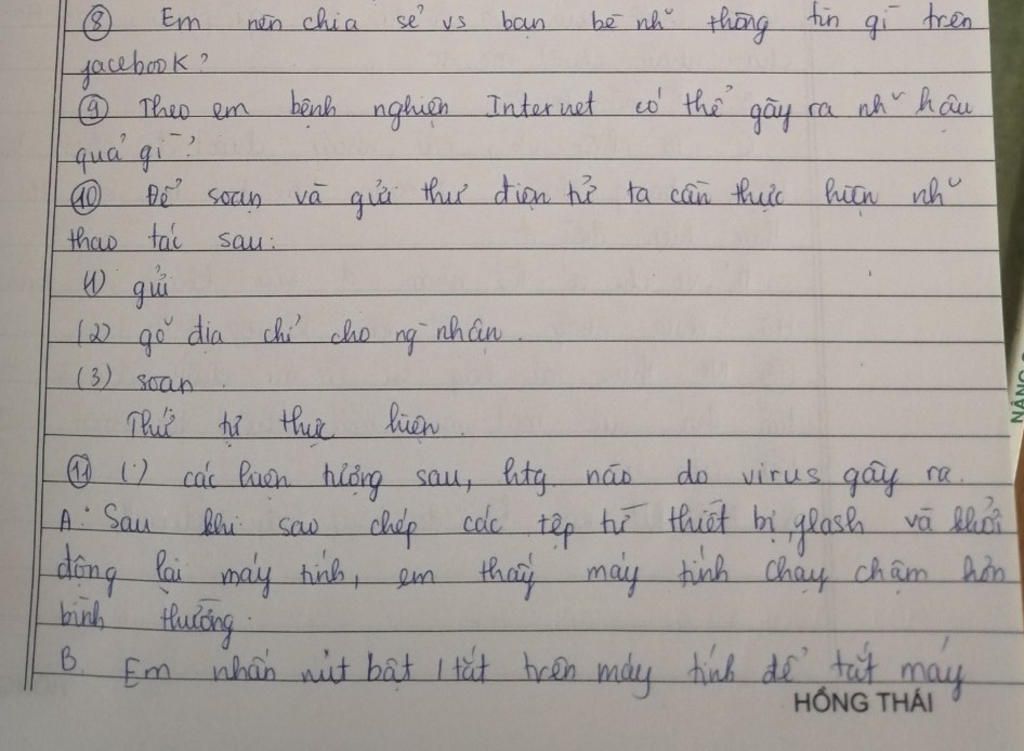 ⑧ Em nên chia sẻ vs bạn bè nh~ thông tin gì trên
facebook?
⑨ Theo em bệnh nghiện Internet có thể gây ra nh~ hậu
quả gì?
⑩ Để soạn và gửi thư điện tử ta cần thực hiện nh~
thao tác sau:
(1) gửi
(2) gõ địa chỉ cho ng nhận.
(3) soạn.
Thứ tự thực hiện.
⑪ (:) các hiện tượng sau, htg nào do virus gây ra.
A. Sau khi sao chép các tệp từ thiết bị flash và khởi
động lại máy tính, em thấy máy tính chạy chậm hơn
bình thường.
B. Em nhấn nút bật / tắt trên máy tính để tắt máy
HỒNG THÁI